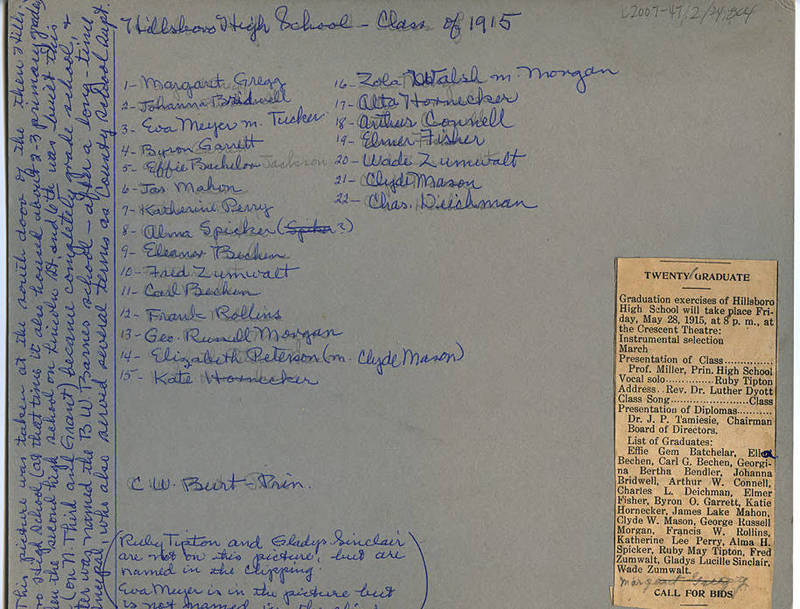 Hillsboro High School - Class of 1915
1- Margaret Gregg
2- Johanna Bridwell
3- Eva Meyer m. Tucker
4- Byron Garrett
5- Effie Bachelor Jackson
6- Jas Mahon
7- Katherine Perry
8- Alma Spicker (Spiker?)
9- Eleanor Bechen
10- Fred Zumwalt
11- Carl Bechen
12- Frank Rollins
13- Geo. Russell Morgan
14- Elizabeth Peterson (m. Clyde Mason)
15- Kate Hornecker
16- Zola Walsh m. Morgan
17- Alta Hornecker
18- Arthur Connell
19- Elmer Fisher
20- Wade Zumwalt
21- Clyde Mason
22- Chas. Deichman
C. W. Burt - Prin.
(Ruby Tipton and Gladys Sinclair
are not on this picture, but are
named in the clipping.
Eva Meyer is in the picture but
is not named in the
This picture was taken at the south door of the then Hills
boro High School (at that time it also housed about 2-3 primary grades
en the second high school on Lincoln St. and 6th was built this
(on N. Third and Grant) became completely grade school, &
ter was named the B. W. Barnes school - after a long-time
incipal, who also served several terms as County School Supt.
TWENTY GRADUATE
Graduation exercises of Hillsboro
High School will take place Fri-
day, May 28, 1915, at 8 p. m., at
the Crescent Theatre:
Instrumental selection
March
Presentation of Class
Prof. Miller, Prin. High School
Vocal solo Ruby Tipton
Address Rev. Dr. Luther Dyott
Class Song Class
Presentation of Diplomas
Dr. J. P. Tamiesie, Chairman
Board of Directors.
List of Graduates:
Effie Gem Batchelar, Ella
Bechen, Carl G. Bechen, Georgi-
na Bertha Bendler, Johanna
Bridwell, Arthur W. Connell,
Charles L. Deichman, Elmer
Fisher, Byron O. Garrett, Katie
Hornecker, James Lake Mahon,
Clyde W. Mason, George Russell
Morgan, Francis W. Rollins,
Katherine Lee Perry, Alma H.
Spicker, Ruby May Tipton, Fred
Zumwalt, Gladys Lucille Sinclair,
Wade Zumwalt.
CALL FOR BIDS